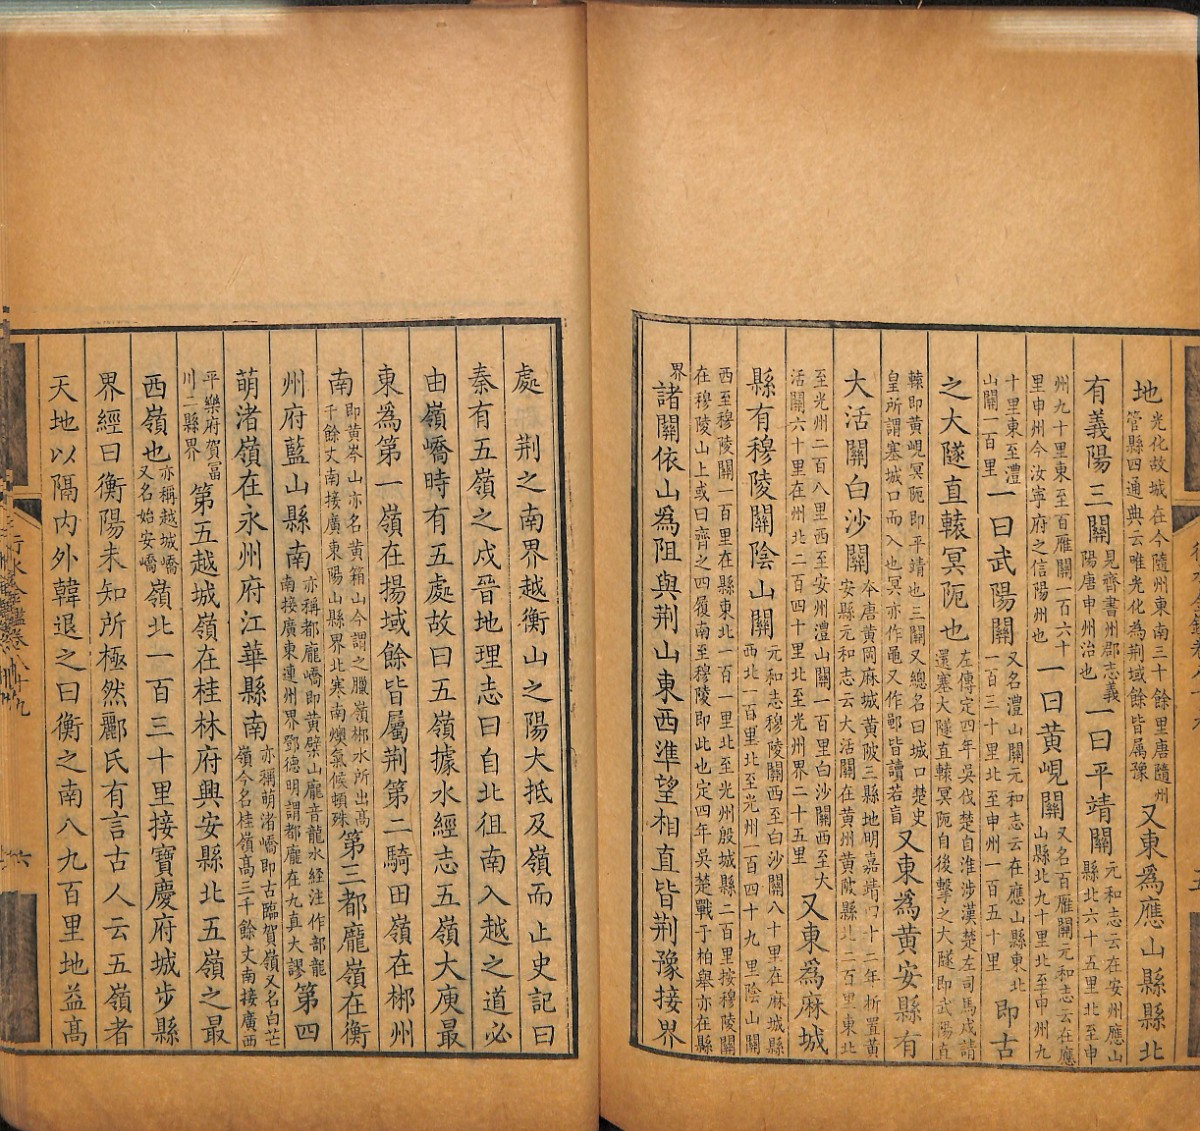 地光化故城在今隨州東南三十餘里唐隨州管縣四通典云唯光化為荆域餘皆属豫又東為應山縣縣北
有義陽三關見齊書州郡志義陽唐申州治也一曰平靖關元和志云在安州應山縣北六十五里北至申
州九十里東至百雁關一百六十里申州今汝寧府之信陽州也一曰黄峴關又名百雁關元和志云在應山縣北九十里北至申州九
十里東至澧山關一百里一曰武陽關又名澧山關元和志云在應山縣東北一百三十里北至申州一百五十里即古
之大隧直轅冥阨也左傳定四年吳伐楚自淮涉漢楚左司馬戍請還塞大隧直轅冥阨自後擊之大隧即武陽直
轅即黄峴冥阨即平靖也三關又總名曰城口楚史皇所謂塞城口而入也冥亦作黽又作鄳皆讀若盲又東為黄安縣有
大活關白沙關本唐黄岡麻城黄陂三縣地明嘉靖四十二年析置黄安縣元和志云大活關在黄州黄陂縣北二百里東北
至光州二百八里西至安州澧山關一百里白沙關西至大活關六十里在州北二百四十里北至光州界二十五里又東為麻城
縣有穆陵關陰山關元和志穆陵關西至白沙關八十里在麻城縣西北一百里北至光州一百四十九里陰山關
西至穆陵關一百里在縣東北一百一里北至光州殷城縣二百里按穆陵關在穆陵山上或曰齊之四履南至穆陵即此也定四年吳楚戰于柏舉亦在縣
界諸關依山為阻與荆山東西準望相直皆荆豫接界
處荆之南界越衡山之陽大抵及嶺而止史記曰
秦有五嶺之戍晉地理志曰自北徂南入越之道必
由嶺嶠時有五處故曰五嶺據水經志五嶺大庾最
東為第一嶺在揚域餘皆屬荆第二騎田嶺在郴州
南即黄岑山亦名黄箱山今謂之臘嶺郴水所出高千餘丈南接廣東陽山縣界北寒南燠氣候頓殊第三都龐嶺在衡
州府藍山縣南亦稱都龐嶠即黄櫱山龐音龍水經注作部龍南接廣東連州界鄧德明謂都龐在九真大謬第四
萌渚嶺在永州府江華縣南亦稱萌渚嶠即古臨賀嶺又名白芒嶺今名桂嶺高三千餘丈南接廣西
平樂府賀富川二縣界第五越城嶺在桂林府興安縣北五嶺之最
西嶺也亦稱越城嶠又名始安嶠嶺北一百三十里接寶慶府城步縣
界經曰衡陽未知所極然酈氏有言古人云五嶺者
天地以隔内外韓退之曰衡之南八九百里地益高
行水金鑑卷八十九
六